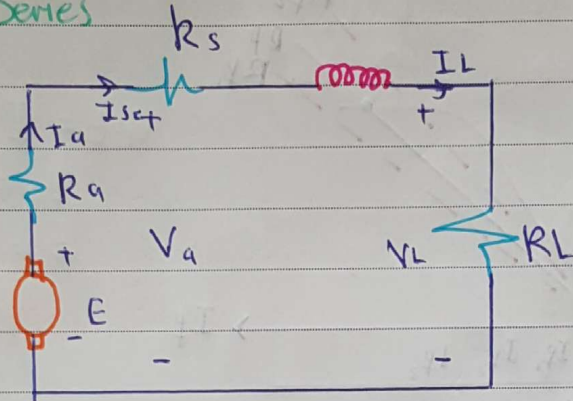 Series
Rs
IL
Is
+
+
Ia
Ra
+
Va
VL
RL
E
-
-
-